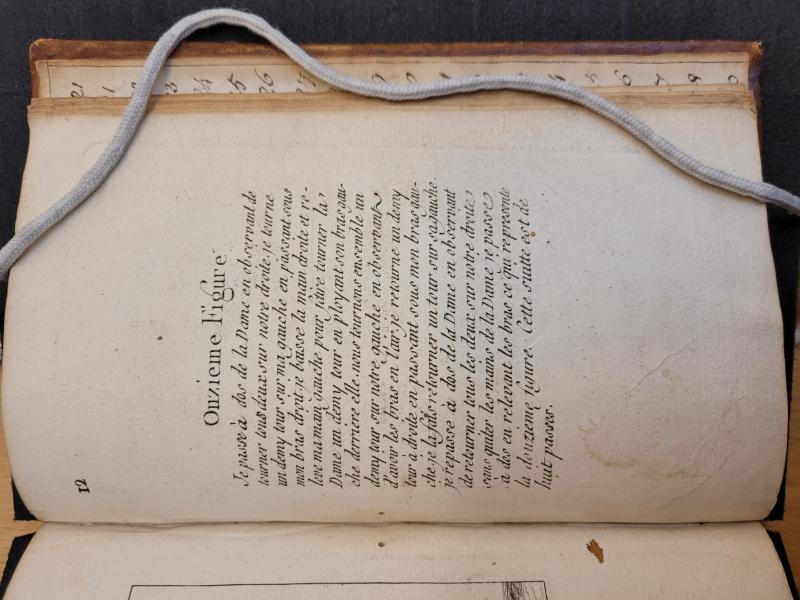 12
Onzieme Figure
Je passe à dos de la Dame en observant de
tourner tous deux sur notre droite. je tourne
un demy tour sur ma gauche en passant sous
mon bras droit. je baisse la main droite et re-
leve ma main gauche pour faire tourner la
Dame un demy tour en ployant son bras gau-
che derriere elle. nous tournons ensemble un
demy tour sur notre gauche en observant
d'avoir les bras en l'air. je retourne un demy
tour à droite en passant sous mon bras gau-
che. je la fais retourner un tour sur sa gauche
je repasse à dos de la Dame en observant
de retourner tous les deux sur notre droite
sans quiter les mains de la Dame je passe
à dos en relevant les bras ce qui represente
la douzieme figure. Cette suitte est de
huit passes.
21
24
26